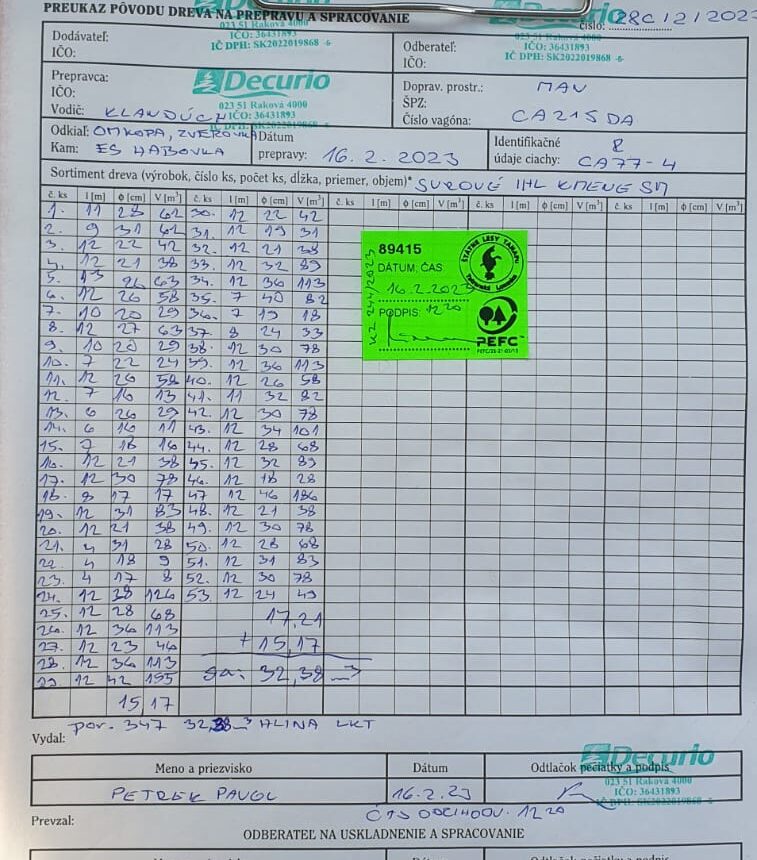 PREUKAZ PÔVODU DREVA NA PREPRAVU A SPRACOVANIE
Decurio
023 51 Raková 4000
IČO: 36431893
IČ DPH: SK2022019868 -6-
číslo: 28C/2/2023
Dodávateľ:
IČO:
Odberateľ:
IČO:
Prepravca:
IČO:
Vodič: KLANDÚCH
Decurio
023 51 Raková 4000
IČO: 36431893
Doprav. prostr.: MAN
ŠPZ:
Číslo vagóna: CA215DA
Odkiaľ: OMKOPA, ZVEROVKA
Kam: ES HABOVKA
Dátum
prepravy: 16.2.2023
Identifikačné
údaje ciachy: CA77-4
Sortiment dreva (výrobok, číslo ks, počet ks, dĺžka, priemer, objem)* SUROVÉ IHL KMENE SM
č. ks l [m] ϕ [cm] V [m³] č. ks l [m] ϕ [cm] V [m³] č. ks l [m] ϕ [cm] V [m³] č. ks l [m] ϕ [cm] V [m³] č. ks l [m] ϕ [cm] V [m³]
1. 11 28 62 30. 12 22 42
2. 9 31 62 31. 12 19 31
3. 12 22 42 32. 12 21 38
4. 12 21 38 33. 12 32 89
5. 13 26 63 34. 12 36 113
6. 12 26 58 35. 7 40 82
7. 10 20 29 36. 7 19 18
8. 12 27 63 37. 8 24 33
9. 10 20 29 38. 12 30 78
10. 7 22 24 39. 12 36 113
11. 12 26 58 40. 12 26 58
12. 7 16 13 41. 11 32 82
13. 6 26 29 42. 12 30 78
14. 6 16 11 43. 12 34 101
15. 7 18 16 44. 12 28 68
16. 12 21 38 45. 12 32 89
17. 12 30 78 46. 12 18 28
18. 8 17 17 47 12 46 186
19. 12 31 83 48. 12 21 38
20. 12 21 38 49. 12 30 78
21. 4 31 28 50. 12 28 68
22 4 18 9 51. 12 31 83
23. 4 17 8 52. 12 30 78
24. 12 38 126 53. 12 24 49
25. 12 28 68 17,21
26. 12 36 113
27. 12 23 46 + 15,17
28. 12 36 113
29 12 42 155 32,38
15,17
89415
ŠTÁTNE LESY TANAPU
Tatranská Lomnica
DÁTUM, ČAS
16.2.2023
PODPIS: 12 20
KZ 244/2023
PEFC
por. 347 HLINA LKT
Vydal:
Meno a priezvisko Dátum Odtlačok pečiatky a podpis
PETREK PAVOL 16.2.23
Decurio
023 51 Raková 4000
IČO: 36431893
IČ DPH: SK2022019868 -6-
ČAS ODCHODU. 12 20
Prevzal:
ODBERATEĽ NA USKLADNENIE A SPRACOVANIE